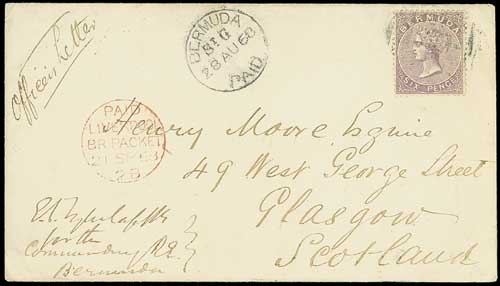 Officer's Letter
BERMUDA
ST G
28 AU 68
PAID
BERMUDA
SIX PENCE
PAID
LIVERPOOL
BR. PACKET
21 SP 68
2B
Henry Moore Esquire
49 West George Street
Glasgow
Scotland
for the
Commanding R.E.
Bermuda